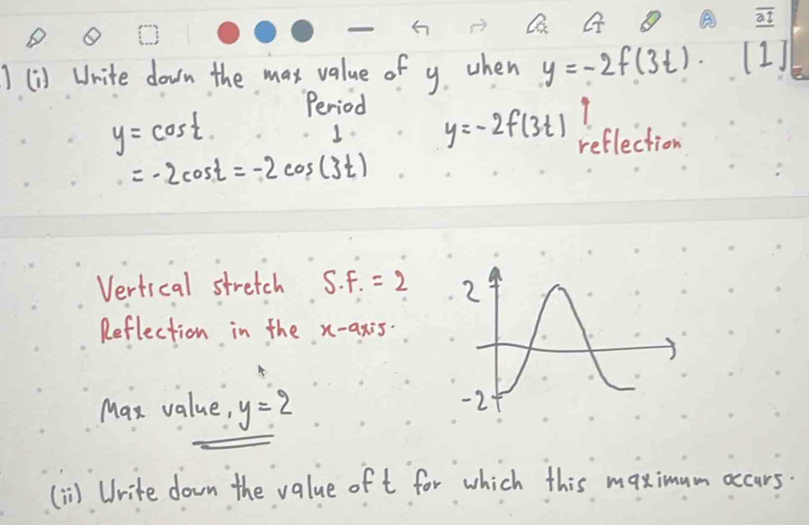 (i) Write down the max value of y when y = -2f(3t). [1]
Period
↓
y = cost.
y = -2f(3t) ↑
reflection
= -2cost = -2 cos(3t)
Vertical stretch S.F. = 2
Reflection in the x-axis.
2
-2
Max value, y = 2
(ii) Write down the value of t for which this maximum occurs.